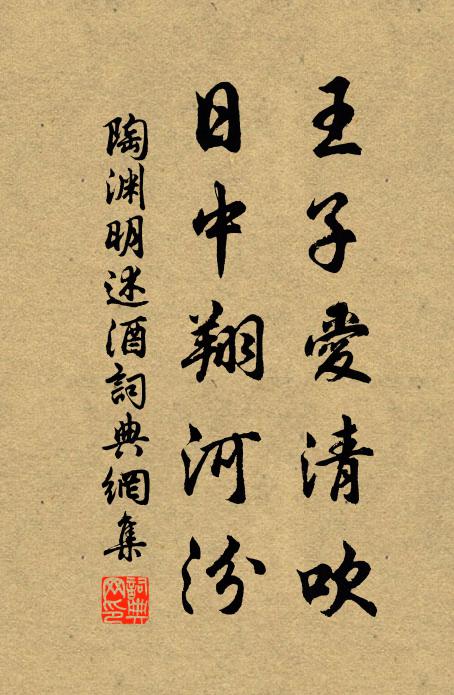 王子愛清吹
日中翔河汾
陶淵明述酒詞典網集
詞典網印